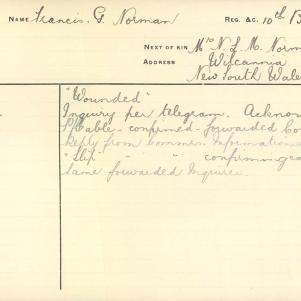 NAME Francis. G. Norman REG. &C. 10th B
NEXT OF KIN Mrs N. L. M. Norm
ADDRESS Wilcannia
New South Wale
"Wounded"
Inquiry per telegram. Acknow
Cable - confirmed - forwarded Co
Reply from Commrs. Information
" " " confirming ca
same forwarded Inquirer.